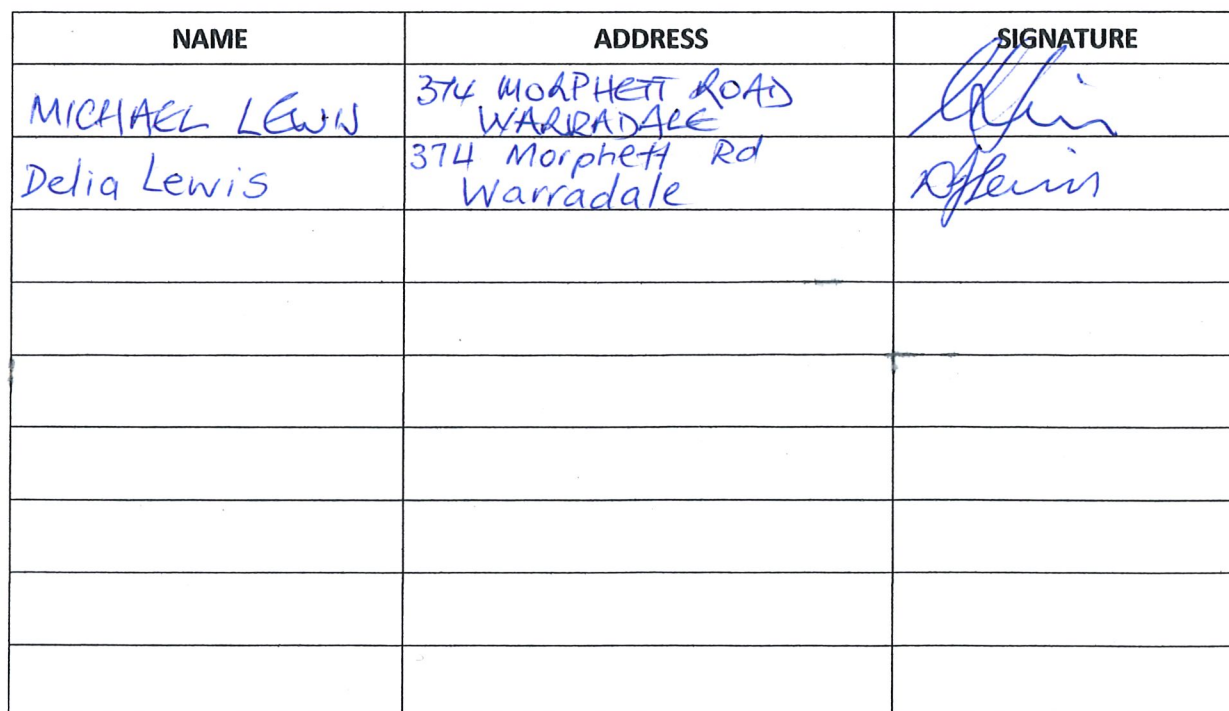 NAME ADDRESS SIGNATURE
MICHAEL LEWIS 374 MORPHETT ROAD
WARRADALE
Delia Lewis 374 Morphett Rd
Warradale